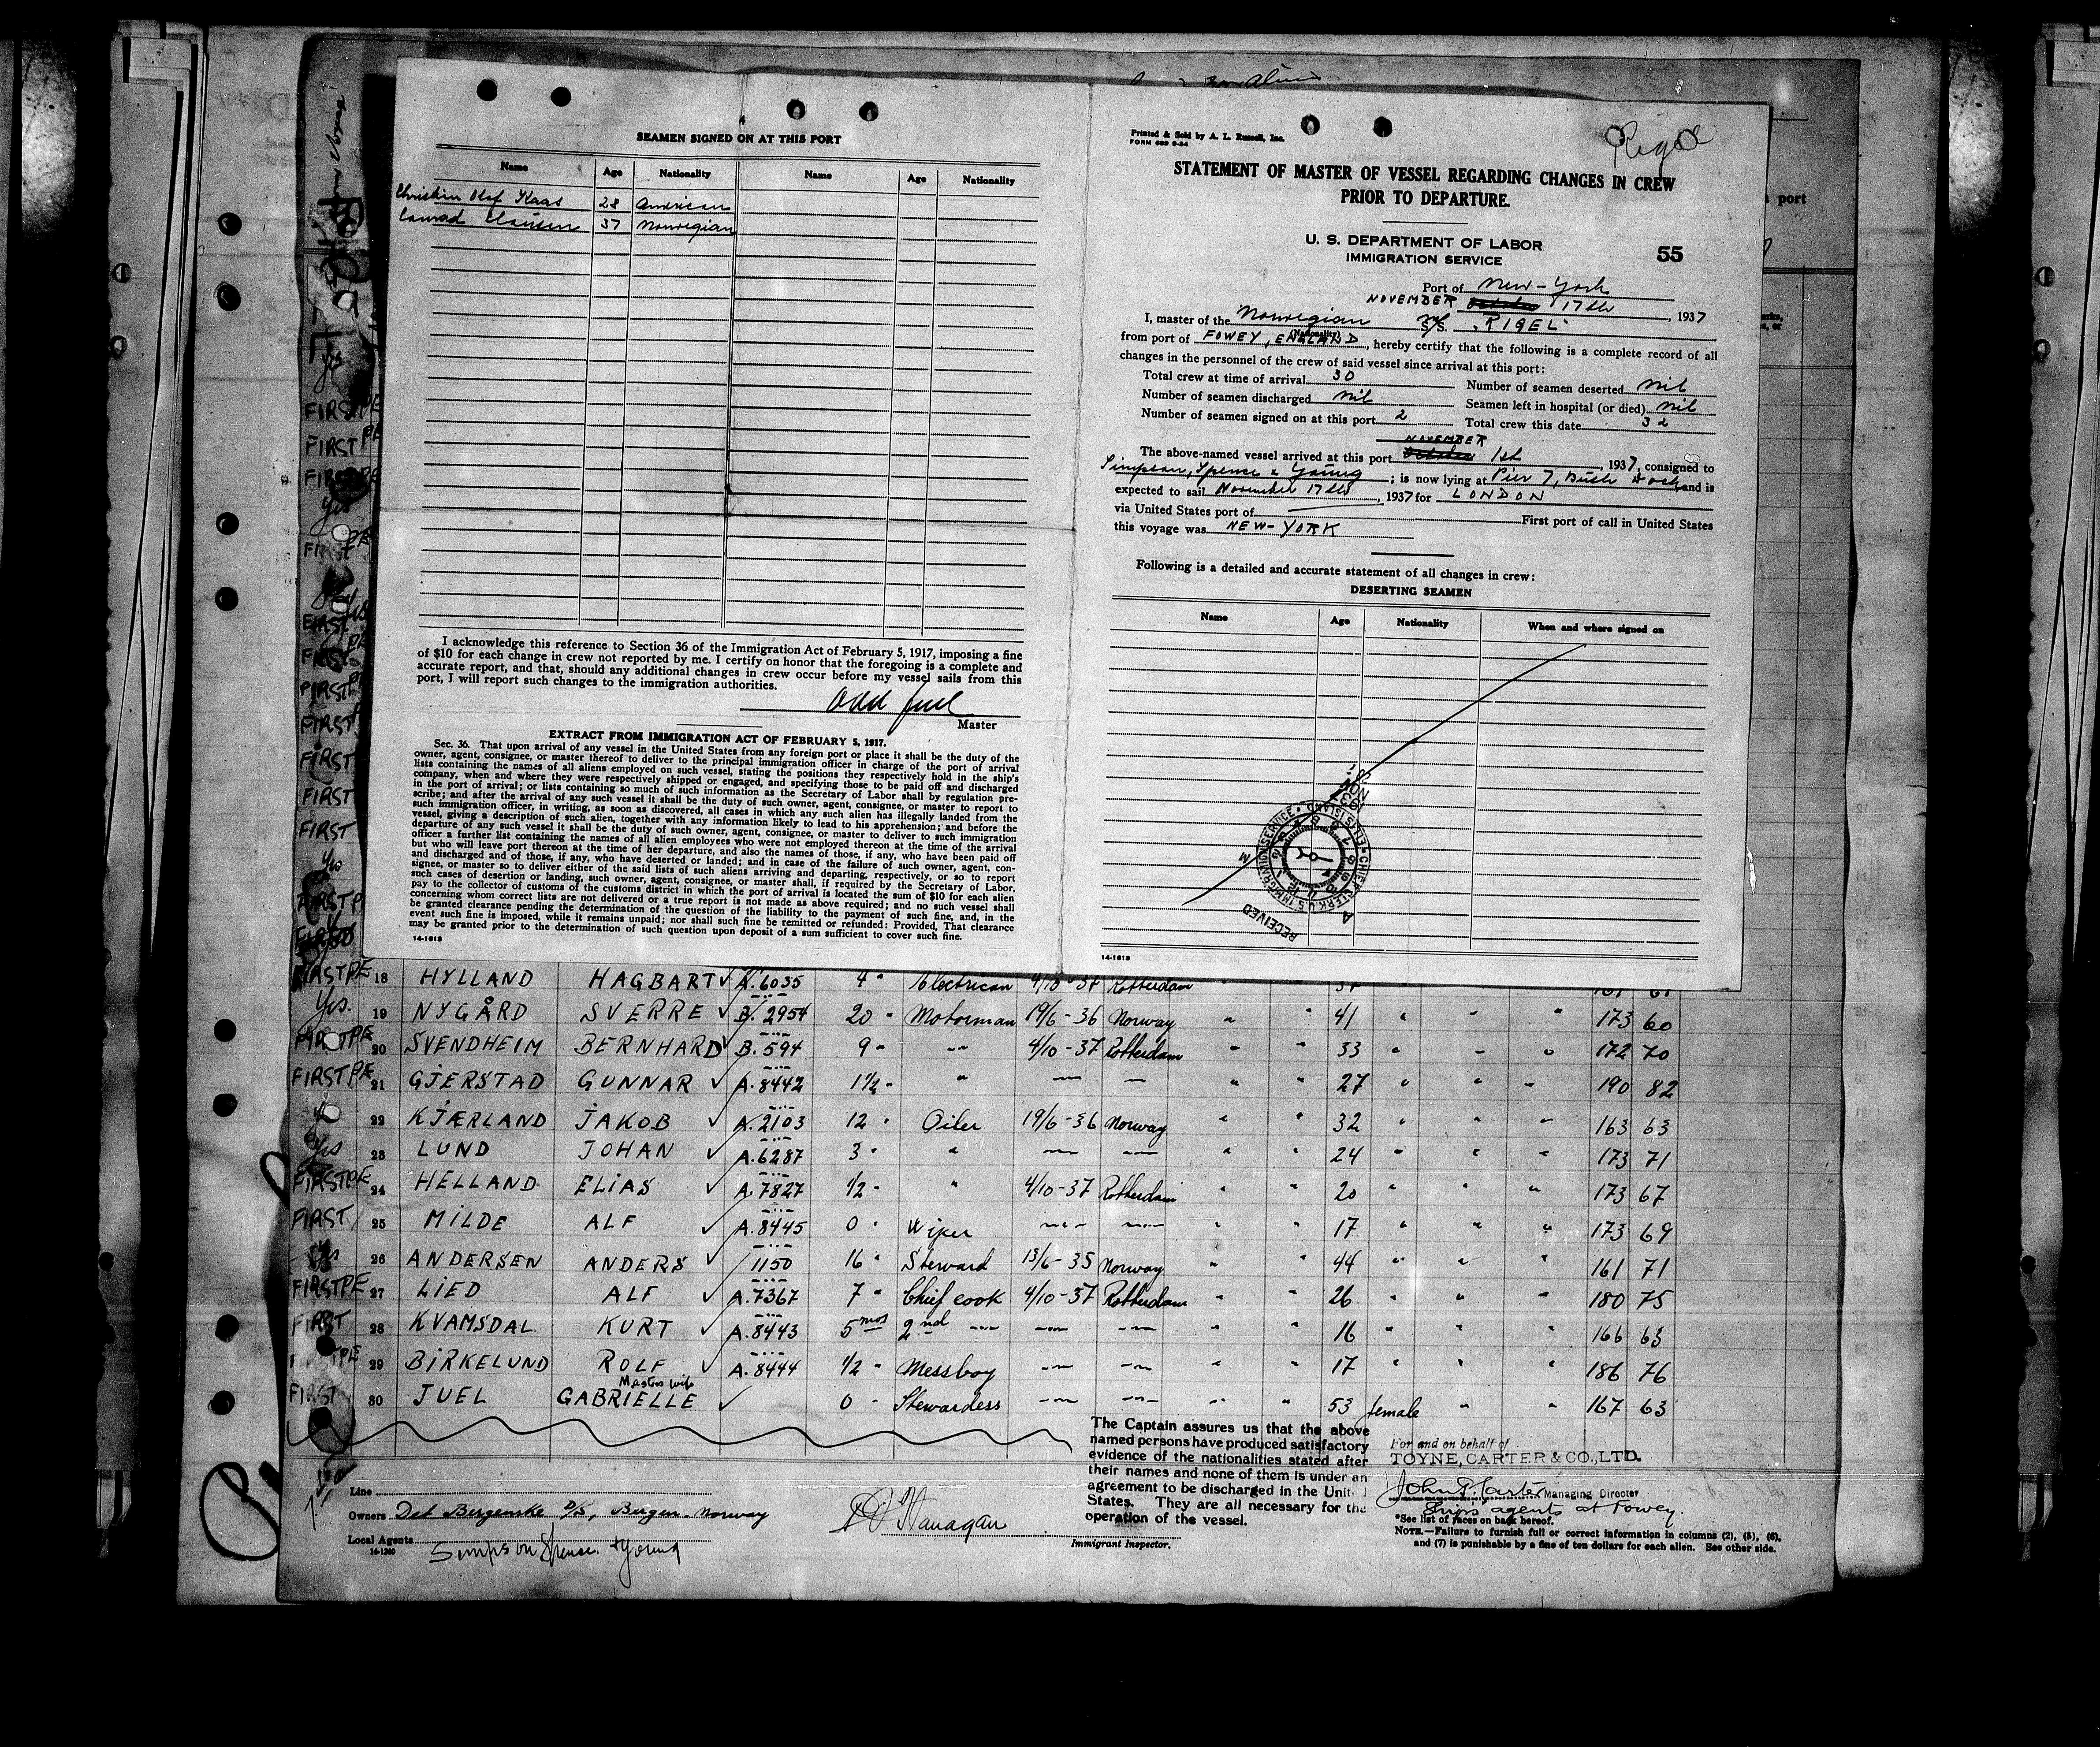 SEAMEN SIGNED ON AT THIS PORT
Name Age Nationality Name Age Nationality
Christian Olaf Kaas 28 American
Conrad Clausen 37 Norwegian
I acknowledge this reference to Section 36 of the Immigration Act of February 5, 1917, imposing a fine
of $10 for each change in crew not reported by me. I certify on honor that the foregoing is a complete and
accurate report, and that, should any additional changes in crew occur before my vessel sails from this
port, I will report such changes to the immigration authorities.
Odd Juel
Master
EXTRACT FROM IMMIGRATION ACT OF FEBRUARY 5, 1917.
Sec. 36. That upon arrival of any vessel in the United States from any foreign port or place it shall be the duty of the
owner, agent, consignee, or master thereof to deliver to the principal immigration officer in charge of the port of arrival
lists containing the names of all aliens employed on such vessel, stating the positions they respectively hold in the ship's
company, when and where they were respectively shipped or engaged, and specifying those to be paid off and discharged
in the port of arrival; or lists containing so much of such information as the Secretary of Labor shall by regulation pre-
scribe; and after the arrival of any such vessel it shall be the duty of such owner, agent, consignee, or master to report to
such immigration officer, in writing, as soon as discovered, all cases in which any such alien has illegally landed from the
vessel, giving a description of such alien, together with any information likely to lead to his apprehension; and before the
departure of any such vessel it shall be the duty of such owner, agent, consignee, or master to deliver to such immigration
officer a further list containing the names of all alien employees who were not employed thereon at the time of the arrival
but who will leave port thereon at the time of her departure, and also the names of those, if any, who have been paid off
and discharged and of those, if any, who have deserted or landed; and in case of the failure of such owner, agent, con-
signee, or master so to deliver either of the said lists of such aliens arriving and departing, respectively, or so to report
such cases of desertion or landing, such owner, agent, consignee, or master shall, if required by the Secretary of Labor,
pay to the collector of customs of the customs district in which the port of arrival is located the sum of $10 for each alien
concerning whom correct lists are not delivered or a true report is not made as above required; and no such vessel shall
be granted clearance pending the determination of the question of the liability to the payment of such fine, and, in the
event such fine is imposed, while it remains unpaid; nor shall such fine be remitted or refunded: Provided, That clearance
may be granted prior to the determination of such question upon deposit of a sum sufficient to cover such fine.
14-1618
Printed & Sold by A. L. Russell, Inc.
FORM 689 9-34
Rigel
STATEMENT OF MASTER OF VESSEL REGARDING CHANGES IN CREW
PRIOR TO DEPARTURE.
U. S. DEPARTMENT OF LABOR
IMMIGRATION SERVICE
55
Port of New-York
NOVEMBER October 17th, 1937
I, master of the Norwegian M/S. S.S. "RIGEL"
(Nationality)
from port of FOWEY, ENGLAND, hereby certify that the following is a complete record of all
changes in the personnel of the crew of said vessel since arrival at this port:
Total crew at time of arrival 30 Number of seamen deserted nil
Number of seamen discharged nil Seamen left in hospital (or died) nil
Number of seamen signed on at this port 2 Total crew this date 32
NOVEMBER
The above-named vessel arrived at this port October 1st, 1937, consigned to
Simpson, Spence & Young; is now lying at Pier 7, Bush Dock, and is
expected to sail November 17th, 1937 for LONDON
via United States port of First port of call in United States
this voyage was NEW-YORK
Following is a detailed and accurate statement of all changes in crew:
DESERTING SEAMEN
Name Age Nationality When and where signed on
RECEIVED
CHIEF CLERK U.S. IMMIGRATION SERVICE ELLIS ISLAND
14-1618
port
FIRST PE 18 HYLLAND HAGBART ✓ A.6035 4 " Electrican 4/10-37 Rotterdam
Yes. 19 NYGÅRD SVERRE ✓ B.2954 20 " Motorman 19/6-36 Norway " " 41 " " " 173 60
FIRST PE 20 SVENDHEIM BERNHARD ✓ B.594 9 " " 4/10-37 Rotterdam " " 33 " " " 172 70
FIRST PE 21 GJERSTAD GUNNAR ✓ A.8442 1½ " " " " " " 27 " " " 190 82
Yes 22 KJÆRLAND JAKOB ✓ A.2103 12 " Oiler 19/6-36 Norway " " 32 " " " 163 63
Yes 23 LUND JOHAN ✓ A.6287 3 " " " " " " 24 " " " 173 71
FIRST PE 24 HELLAND ELIAS ✓ A.7827 1/2 " " 4/10-37 Rotterdam " " 20 " " " 173 67
FIRST 25 MILDE ALF ✓ A.8445 0 " Wiper " " " " 17 " " " 173 69
Yes 26 ANDERSEN ANDERS ✓ 1150 16 " Steward 13/6-35 Norway " " 44 " " " 161 71
FIRST PE 27 LIED ALF ✓ A.7367 7 " Chief cook 4/10-37 Rotterdam " " 26 " " " 180 75
FIRST 28 KVAMSDAL KURT ✓ A.8443 5 mos 2nd " " " " " 16 " " " 166 63
PE 29 BIRKELUND ROLF ✓ A.8444 1/2 " Messboy " " " " 17 " " " 186 76
Masters wife
FIRST 30 JUEL GABRIELLE ✓ 0 " Stewardess " " " " 53 female " " 167 63
The Captain assures us that the above
named persons have produced satisfactory
evidence of the nationalities stated after
their names and none of them is under an
agreement to be discharged in the United
States. They are all necessary for the
operation of the vessel.
For and on behalf of
TOYNE, CARTER & CO., LTD.
John P. Carter Managing Director
Ship's agents at Fowey.
*See list of races on back hereof.
NOTE.—Failure to furnish full or correct information in columns (2), (5), (6),
and (7) is punishable by a fine of ten dollars for each alien. See other side.
Line
Owners Det Bergenske D/S, Bergen Norway
Local Agents Simpson Spence & Young
14-1240
Immigrant Inspector.